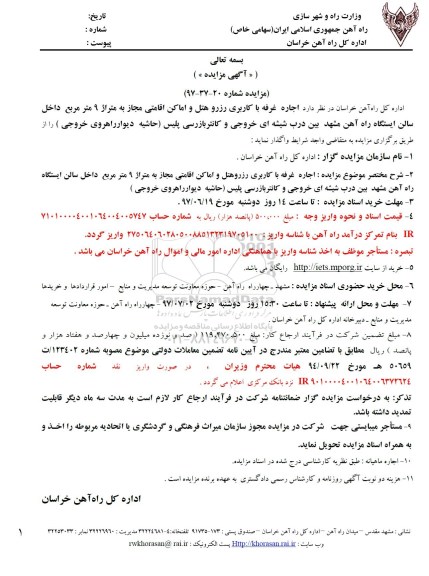 وزارت راه و شهر سازی
راه آهن جمهوری اسلامی ایران(سهامی خاص)
اداره کل راه آهن خراسان
تاریخ:
شماره :
پیوست :
بسمه تعالی
( « آگهی مزایده » )
(مزایده شماره ۲۰-۳۷-۹۷)
اداره کل راه‌آهن خراسان در نظر دارد اجاره غرفه با کاربری رزرو هتل و اماکن اقامتی مجاز به متراژ ۹ متر مربع داخل
سالن ایستگاه راه آهن مشهد بین درب شیشه ای خروجی و کانتربازرسی پلیس (حاشیه دیوارراهروی خروجی ) را از
طریق برگزاری مزایده به متقاضی واجد شرایط واگذار نماید :
۱- نام سازمان مزایده گزار : اداره کل راه آهن خراسان .
۲- شرح مختصر موضوع مزایده : اجاره غرفه با کاربری رزروهتل و اماکن اقامتی مجاز به متراژ ۹ متر مربع داخل سالن ایستگاه
راه آهن مشهد بین درب شیشه ای خروجی و کانتربازرسی پلیس (حاشیه دیوارراهروی خروجی )
۳- مهلت خرید اسناد مزایده : تا ساعت ۱۴ روز دوشنبه مورخ ۹۷/۰۶/۱۹
۴- قیمت اسناد و نحوه واریز وجه : مبلغ ۵۰۰,۰۰۰ (پانصد هزار) ریال به شماره حساب
IR بنام تمرکز درآمد راه آهن با شناسه واریز: واریز گردد.
تبصره : مستأجر موظف به اخذ شناسه واریز با هماهنگی اداره امور مالی و اموال راه آهن خراسان می باشد .
۵- خرید از سایت http://iets.mporg.ir رایگان می باشد.
۶- محل خرید حضوری اسناد مزایده : مشهد ـ چهارراه راه آهن - حوزه معاونت توسعه مدیریت و منابع - امور قراردادها و خریدها
۷- مهلت و محل ارائه پیشنهاد : تا ساعت ۱۵:۳۰ روز دوشنبه مورخ ۹۷/۰۷/۰۲ - چهارراه راه آهن ـ حوزه معاونت توسعه
مدیریت و منابع ـ دبیرخانه اداره کل راه آهن خراسان .
۸- مبلغ تضمین شرکت در فرآیند ارجاع کار: مبلغ ۱۱۹,۴۷۰,۵۰۰ ریال (صد و نوزده میلیون و چهارصد و هفتاد هزار و
پانصد ) ریال مطابق با تضامین معتبر مندرج در آیین نامه تضمین معاملات دولتی موضوع مصوبه شماره ۱۲۳۴۰۲/ت
۵۰۶۵۹ هـ مورخ ۹۴/۰۹/۲۲ هیات محترم وزیران ، در صورت واریز نقد شماره حساب
نزد بانک مرکزی اعلام می گردد .
تذکر: به درخواست مزایده گزار ضمانتنامه شرکت در فرآیند ارجاع کار لازم است به مدت سه ماه دیگر قابلیت
تمدید داشته باشد.
۹- مستأجر میبایستی جهت شرکت در مزایده مجوز سازمان میراث فرهنگی و گردشگری یا اتحادیه مربوطه را اخذ و
به همراه اسناد مزایده تحویل نماید.
۱۰- اجاره ماهیانه : طبق نظریه کارشناسی درج شده در اسناد مزایده.
۱۱- هزینه دو نوبت آگهی روزنامه و کارشناس رسمی دادگستری به عهده برنده مزایده است .
اداره کل راه‌آهن خراسان
نشانی : مشهد مقدس - میدان راه آهن - اداره کل راه آهن خراسان - صندوق پستی : ۱۷۳-۹۱۷۳۵
وب سایت : Http://khorasan.rai.ir پست الکترونیک : rwkhorasan@rai.ir
۱